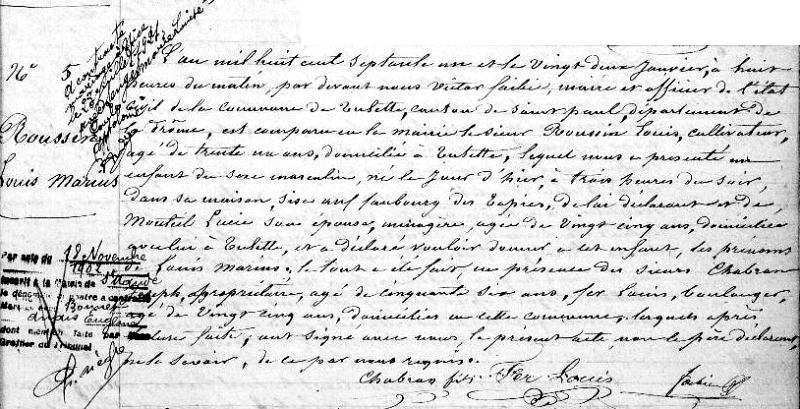 N° 5
Roussin
Louis Marius
L'an mil huit cent septante un et le vingt deux Janvier, à huit
heures du matin, par devant nous Victor faibie, maire et officier de l'état
civil de la commune de Tulette, canton de Saint paul, département de
la Drôme, est comparu en la mairie le sieur Roussin Louis, cultivateur,
agé de trente un ans, domicilié à Tulette, lequel nous a présenté un
enfant du sexe masculin, né le Jour d'hier, à trois heures du soir,
dans sa maison, sise au faubourg des de lui déclarant et de
Monteil Lucie son épouse, ménagère, agée de vingt cinq ans, domiciliée
à Tulette, et a déclaré vouloir donner à cet enfant, les prénoms
de Louis Marius; le tout a été fait en présence des sieurs Chabran
Joseph, propriétaire, agé de cinquante six ans, fer Louis, boulanger,
agé de vingt cinq ans, domiciliés en cette commune, lesquels après
lecture faite, ont signé avec nous, le présent acte, non le père déclarant,
pour ne le savoir, de ce par nous requis.
Chabran fils Fer Louis
Par acte du 18 Novembre
1902
inscrit à la Mairie de
le dénommé ci-contre a contracté
Mariage
dont mention faite par
Greffier du Tribunal